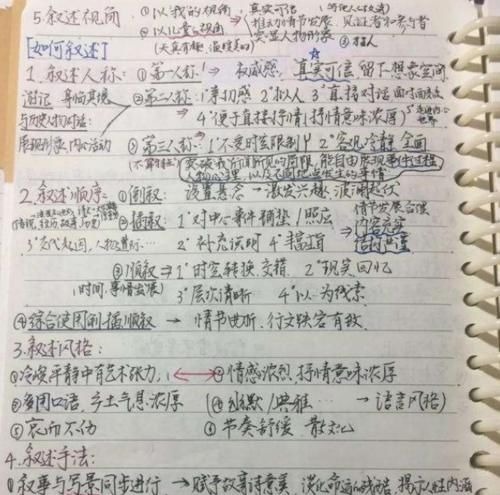 5.叙述视角 ①以我的视角 真实可信
②以儿童的视角 推动情节发展 见证者和参与者
(天真有趣,温馨美好) 突显人物形象
[如何叙述]
1.叙述人称:①第一人称 → 权威感,真实可信,留下想象空间
游记:身临其境 ②第二人称:1°亲切感 2°拟人 3°直接对话
与历史人物对话: 4°便于直接抒情(抒情意味浓厚)
展现形象,内心活动 ③第三人称:1°不受时空限制 2°客观冷静 全面
突破我所闻所见的局限,能自由展现事件过程
人物心理,以及不同地点发生的事情
2.叙述顺序:①倒叙:设置悬念→激发兴趣,波澜起伏
②插叙:1°对中心事件铺垫/照应 情节发展合理
3°交代起因,人物 2°补充说明 4°丰富 内容充实
③顺叙→1°时空转换,交错 2°现实,回忆
(时间,事情发展) 3°层次清晰 4°以一为线索
④综合使用倒插顺叙 → 情节曲折,行文跌宕有致
3.叙述风格:
①冷峻平静中有艺术张力, ②情感浓烈,抒情意味浓厚
③多用口语,乡土气息浓厚 (④幽默/典雅… → 语言风格)
⑤哀而不伤 ⑥节奏舒缓 散文化
4.叙述手法:
①叙事与写景同步进行 → 赋予故事诗意美 淡化命运的残酷 揭示人性内涵